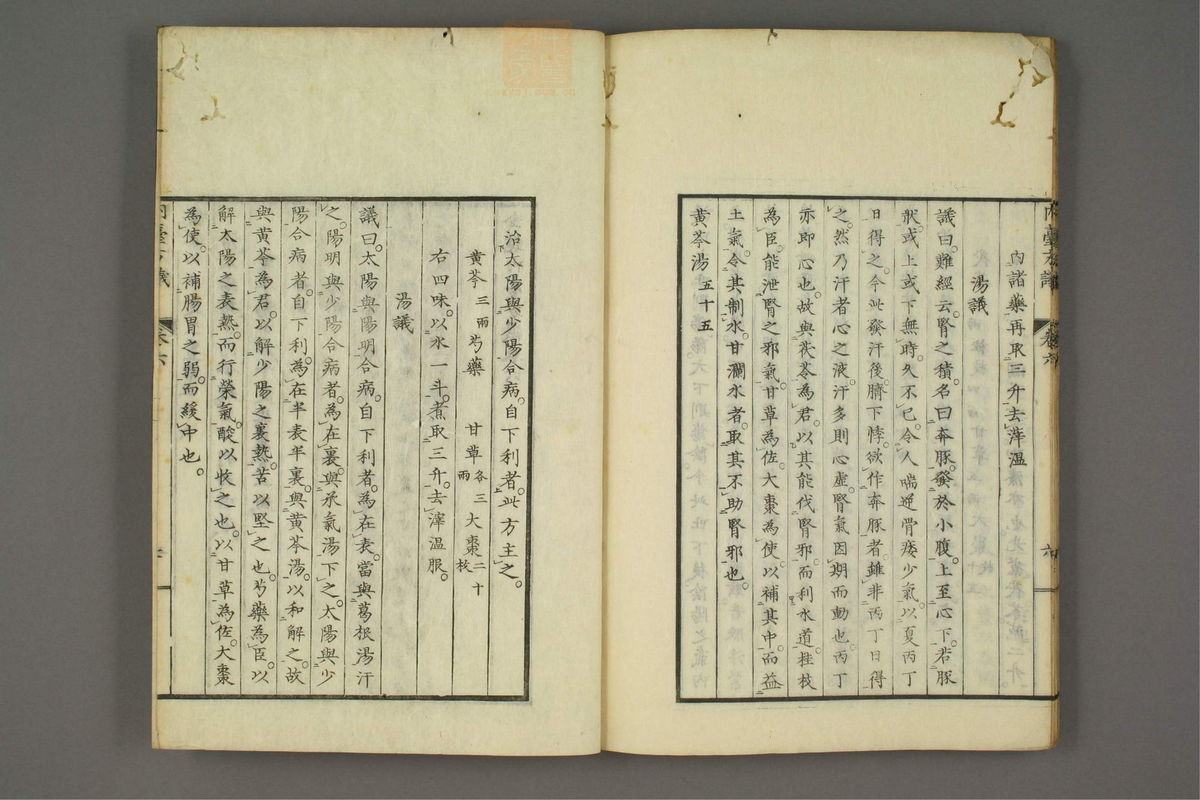 內諸藥再取三升去滓温
湯議
議曰難經云腎之積名曰奔豚發於小腹上至心下若豚
狀或上或下無時久不已令人喘逆骨痿少氣以夏丙丁
日得之今此發汗後臍下悸欲作奔豚者雖非丙丁日得
之然乃汗者心之液汗多則心虛腎氣因期而動也丙丁
亦即心也故與茯苓為君以其能伐腎邪而利水道桂枝
為臣能泄腎之邪氣甘草為佐大棗為使以補其中而益
土氣令其制水甘瀾水者取其不助腎邪也
黃芩湯 五十五
治太陽與少陽合病自下利者此方主之
黃芩三兩 芍藥 甘草各三兩 大棗二十枚
右四味以水一斗煮取三升去滓温服
湯議
議曰太陽與陽明合病自下利者為在表當與葛根湯汗
之陽明與少陽合病者為在裏與承氣湯下之太陽與少
陽合病者自下利為在半表半裏與黃芩湯以和解之故
與黃芩為君以解少陽之裏熱苦以堅之也芍藥為臣以
解太陽之表熱而行榮氣酸以收之也以甘草為佐大棗
為使以補腸胃之弱而緩中也